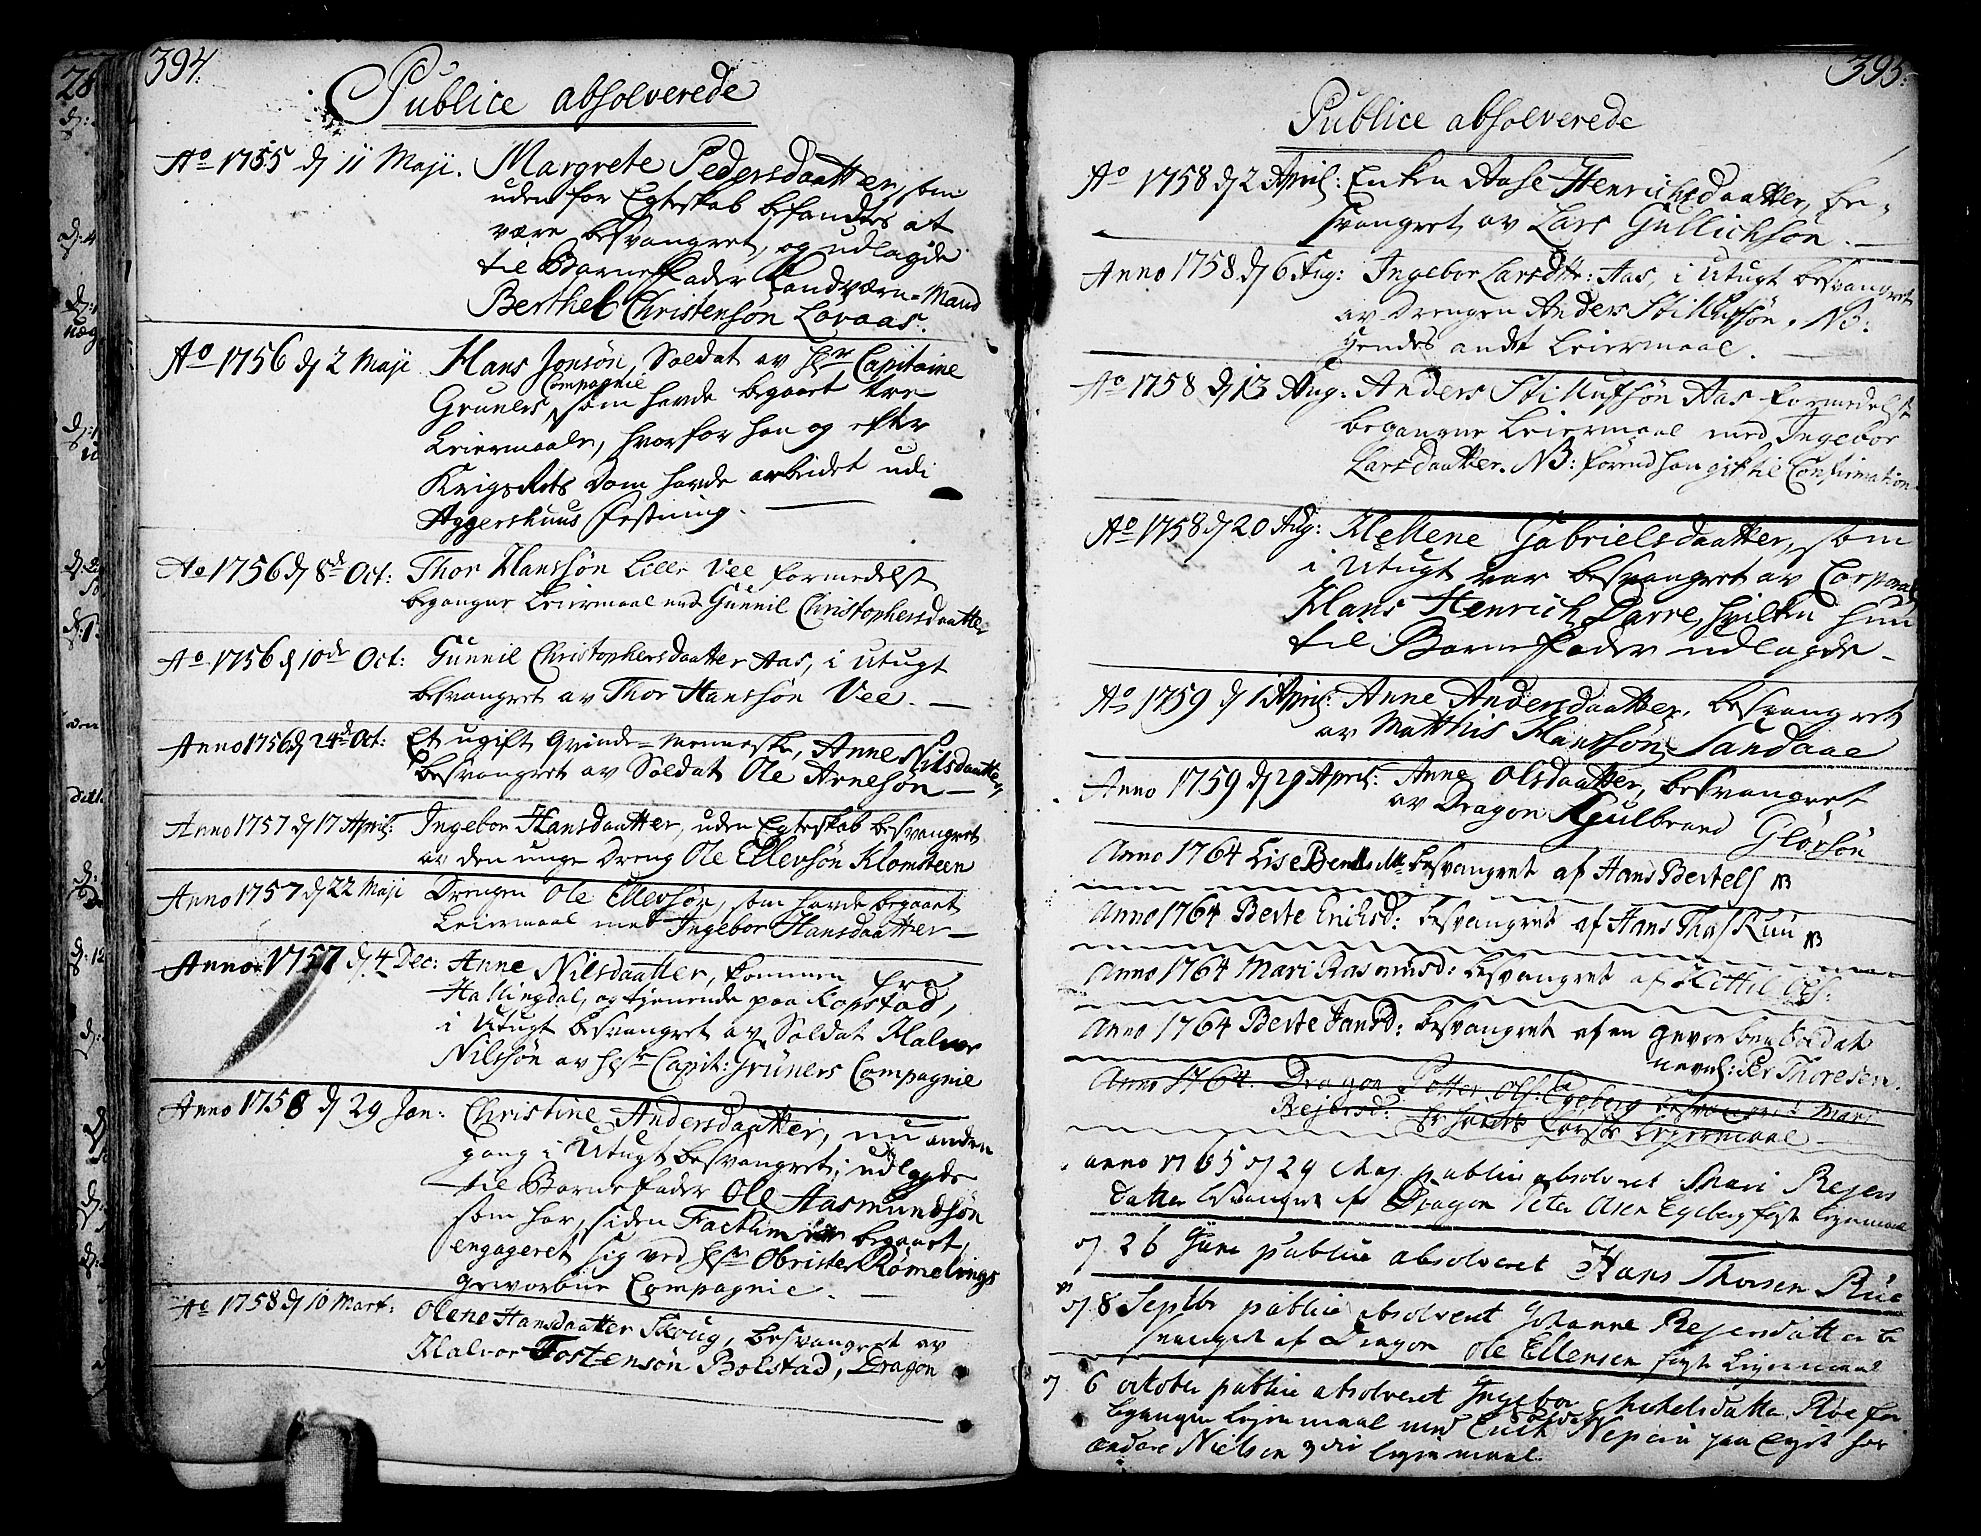 394.
Publice absolverede
Ao 1755 d 11 Maji. Margrete Pedersdaatter, som
uden for Egteskab befandtes at
være besvangret, og udlagde
til Barnefader Landværn-Mand
Berthel Christensøn Lovaas.
Ao 1756 d 2 Maji Hans Jonsøn, Soldat av Hr Capitaine
Compagnie
Gruners, som havde begaaet tre
Leiermaale, hvorfor han og efter
Krigs Rets Dom havde arbeidet udi
Aggershuus Festning.
Ao 1756 d 8de Oct: Thor Hanssøn Lille Vee formedelst
begangne Leiermaal med Gunnil Christophersdaatter
Ao 1756 d 10de Oct: Gunnil Christophersdaatter Aas, i Utugt
besvangret av Thor Hanssøn Vee.
Anno 1756 d 24de Oct: Et ugift Qvinde-Menneske, Anne Nilsdaatter,
besvangret av Soldat Ole Arnesøn
Anno 1757 d 17 April: Ingebor Hansdaatter, uden Egteskab besvangret
av den unge Dreng Ole Ellevsøn Klomsteen
Anno 1757 d 22 Maji Drengen Ole Ellevsøn, som havde begaaet
Leiermaal med Ingebor Hansdaatter
Anno 1757 d 4 Dec: Anne Nilsdaatter, kommen fra
Hallingdal, og tjenende paa Kopstad,
i Utugt besvangret av Soldat Halvor
Nilssøn av Hr Capit: Grüners Compagnie
Anno 1758 d 29 Jan: Christine Andersdaatter, nu anden
gang i Utugt besvangret; udlagde
til Barnefader Ole Aasmundsøn
som har, siden Factum begaaet,
engageret sig ved Hr Obrister Rømelings
Geworbne Compagnie.
Ao 1758 d 10 Mart: Olene Hansdaatter Skoug, besvangret av
Halvor Tostensøn Bolstad, Dragon
395.
Publice absolverede
Ao 1758 d 2 April: Enken Aase Henrichsdaatter, be-
svangret av Lars Gullichsøn.
Anno 1758 d 6 Aug: Ingebor Larsdtr: Aas, i Utugt besvangret
av Drengen Anders Stillufsøn. NB:
hendes andet Leiermaal.
Ao 1758 d 13 Aug: Anders Stillufsøn Aas formedelst
begangne Leiermaal med Ingebor
Larsdaatter. NB: forend han gik til Confirmation
Ao 1758 d 20 Aug: Mellene Gabrielsdaatter, som
i Utugt var besvangret av Corporal
Hans Henrich Darre, hvilken hun
til Barnefader udlagde
Ao 1759 d 1 April: Anne Andersdaatter, besvangret
av Matthis Hanssøn Sandaae
Anno 1759 d 29 April: Anne Olsdaatter, besvangret
av Dragon Gulbrand Glorsøn
Anno 1764 Lise besvangret af Hans Bertels NB
Anno 1764 Berte Erichsd: besvangret af Hans Thos Ruu NB
Anno 1764 Mari Rasmusd: besvangret af Kittil Ols:
Anno 1764 Berte Jansd: besvangret af en Gevorben Soldat
navnl: Per Thoresen.
Anno 1764. Dragon Petter Ols: Egeberg besvangret Mari
Rejersd: første Lejermaal
anno 1765 d 29 Maj publice absolveret Mari Rejers
datter besvangret af Dragon Peter Olsen Egeberg første Lejermaal
d 26 Juni publice absolveret Hans Thorsen Rue
d 8 Septbr publice absolveret Johanne Rejersdatter be
svanget af Dragon Ole Ellensen første Lejermaal
d 6 october publice absolveret Ingebor Mickelsdatter Røe for
begangen Lejermaal med paa Eget hos
andare Nielsen 3die Lejermaal